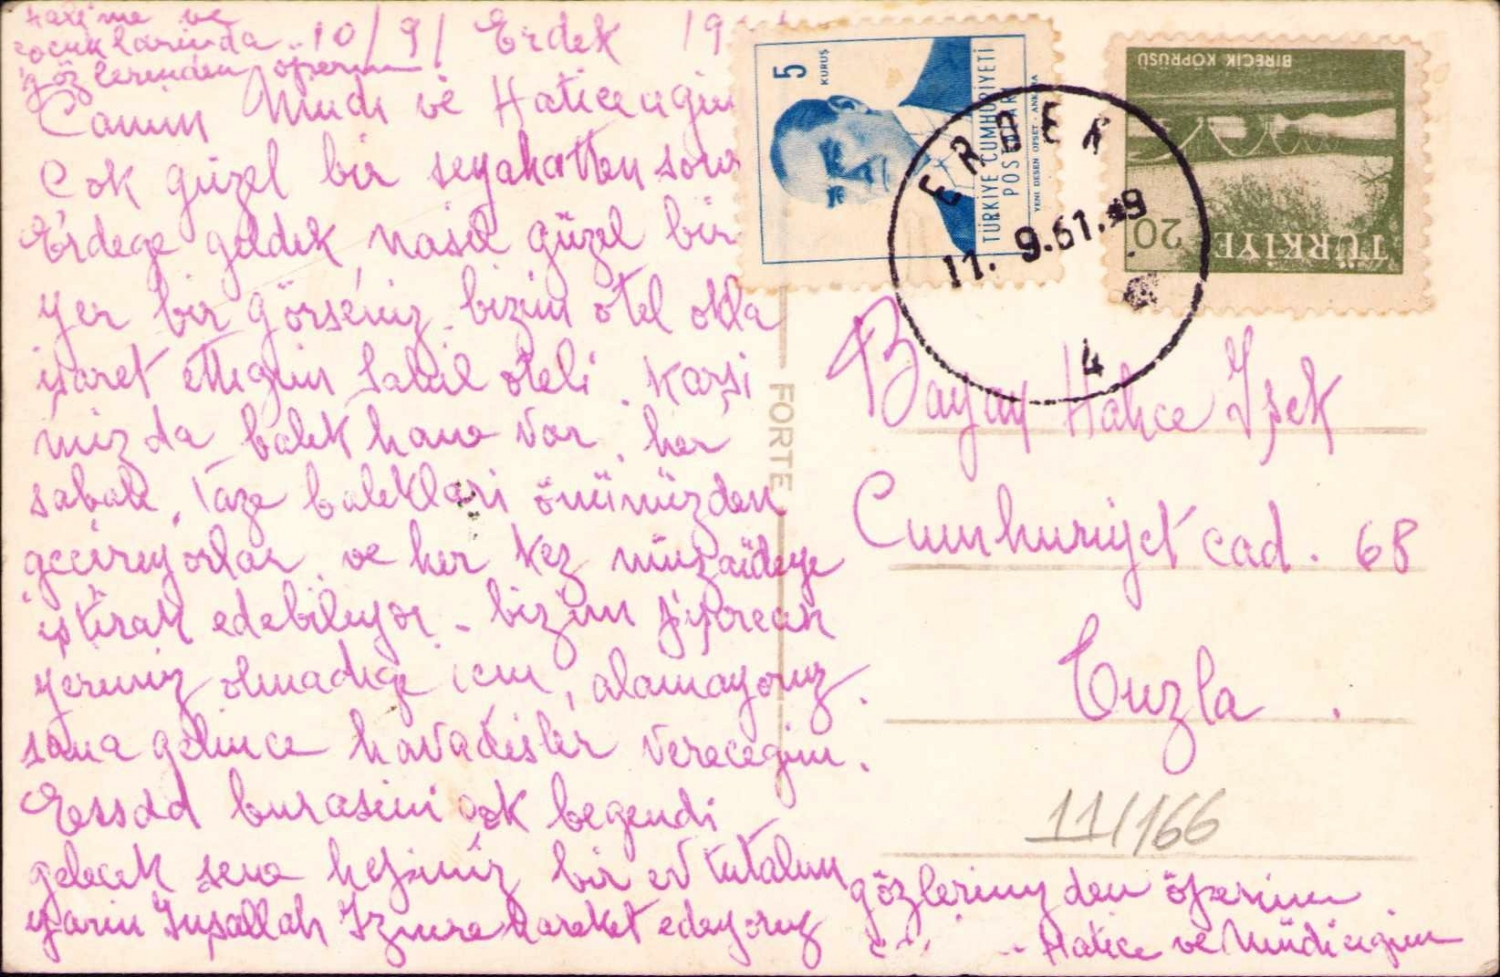 Halime ve
çocuklarında
gözlerinden öperim
10/9/ Erdek 19
Canım Müdi ve Haticeciğim
Çok güzel bir seyahatten sonra
Erdeğe geldik nasıl güzel bir
yer bir görseniz. bizim otel okla
işaret ettiğim Sahil oteli. Karşi
mızda balıkhane var. her
sabah, taze balıkları önümüzden
geçiriyorlar ve her kez müzaideye
iştirak edebiliyor - bizim pişirecek
yerimiz olmadığı için, alamayoruz.
sana gelince havadisler vereceğim.
Essad burasını çok beğendi
gelecek sene hepimiz bir ev tutalım
yarın İnşallah İzmire hareket edeyoruz
gözlerinizden öperim
Hatice ve Müdiciğim
FORTE
5
KURUŞ
TÜRKİYE CUMHURİYETİ
POSTALARI
YENİ DESEN OFSET - ANKARA
BİRECİK KÖPRÜSÜ
20
TÜRKİYE
ERDEK
11. 9.61.19
4
Bayan Hatice Işek
Cumhuriyet cad. 68
Tuzla
11/166